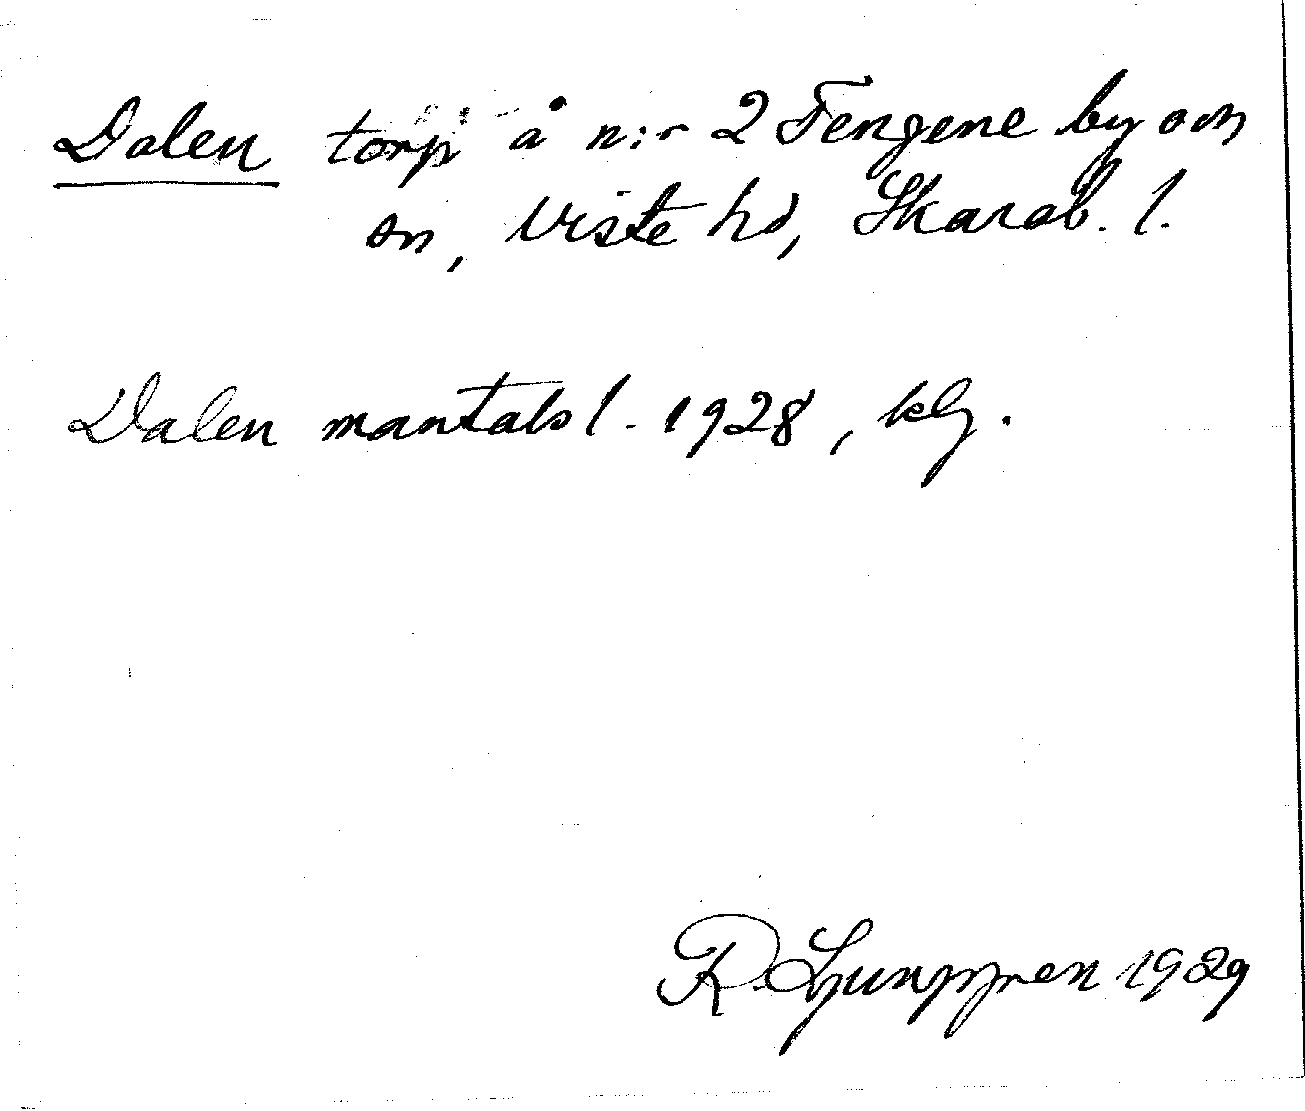 Dalen torp å n:r 2 Fengene by och
sn, Viste hd, Skarab. l.
Dalen mantalsl. 1928, klg.
R. Ljunggren 1929